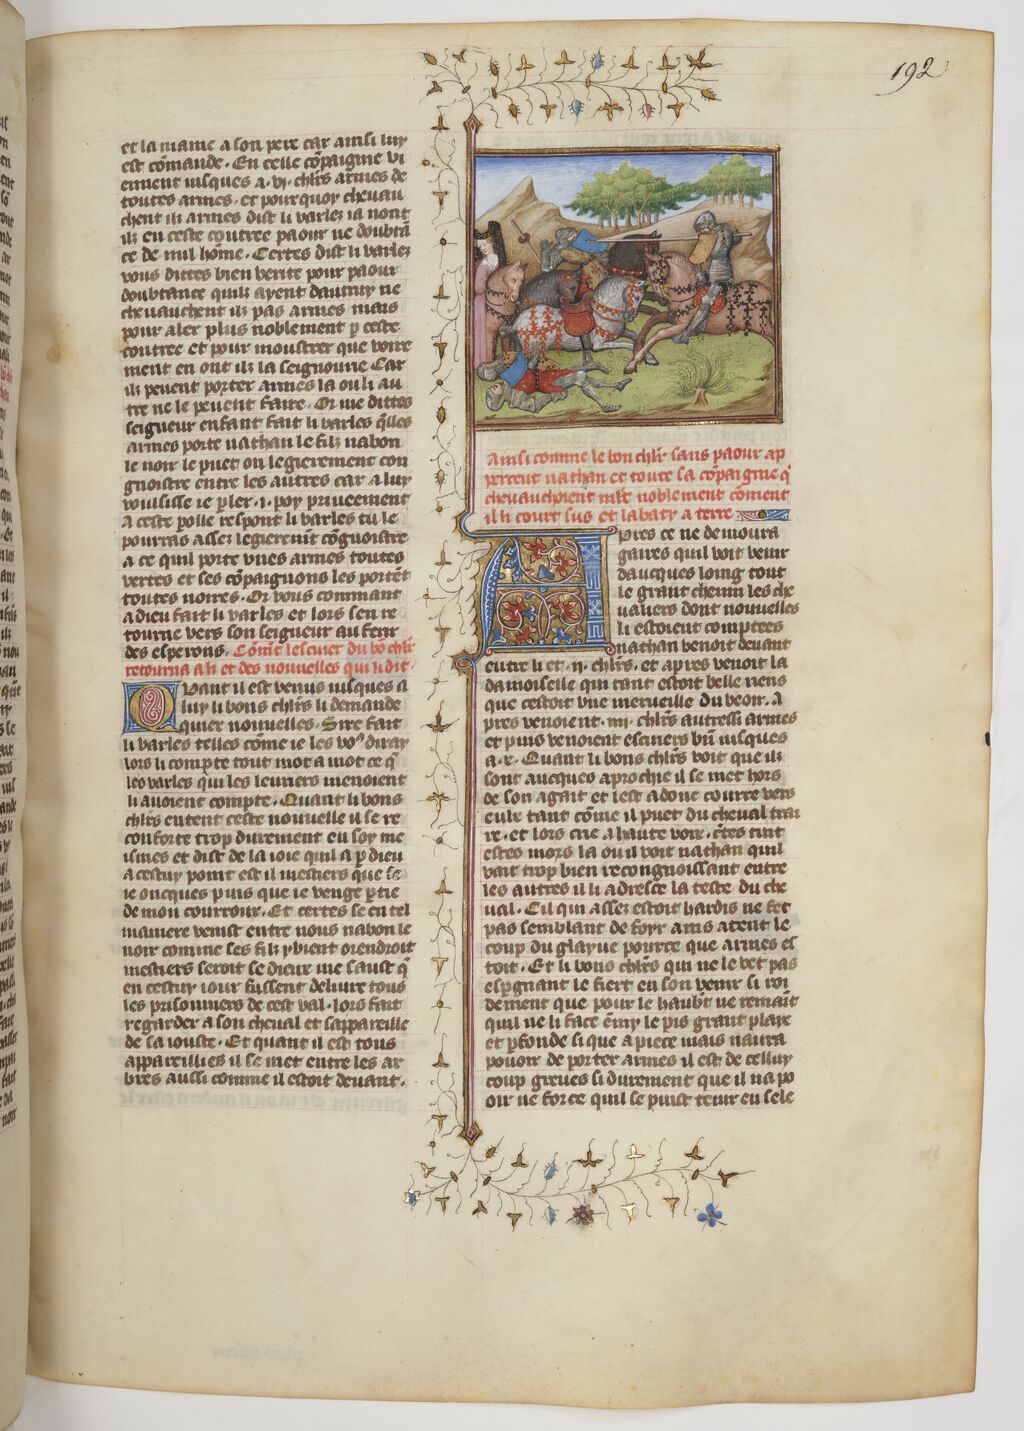 192
et la maine a son pere car ainsi luy
est cōmande. En celle cōpaigne vi
ennent iusques a .vi. chlrs armes de
toutes armes. et pourquoy cheuau
chent ilz armes dist li varlez ia nont
ilz en ceste contree paour ne doubta
ce de nul hōme. Certes dist li varlez
vous dittes bien verite pour paour
doubtance quilz ayent dautruy ne
cheuauchent ilz pas armes mais
pour aler plus noblement p ceste
contree et pour moustrer que voire
ment en ont ilz la seignourie Car
ilz peuent porter armes la ou li au
tre ne le peuent faire. Or me dittes
seigneur enfant fait li varles q̄lles
armes porte nathan le filz nabon
le noir le puet on legierement con
gnoistre entre les autres car a luy
voulsisse ie pler .i. poy priueement
A ceste polle respont li varles tu le
pourras assez legieremt cōgnoistre
a ce quil porte vnes armes toutes
vertes et ses cōpaignons les portēt
toutes noires. Or vous commant
a dieu fait li varles et lors sen re
tourne vers son seigneur au ferir
des esperons. Cōmēt lescuier du bō chlr
retourna a li et des nouuelles qui li dit.
Quant il est venus iusques a
luy li bons chlrs li demande
quier nouuelles. Sire fait
li varles telles cōme ie les voꝰ diray
lors li compte tout mot a mot ce q̄
les varles qui les leuriers menoient
li auoient compte. Quant li bons
chlrs entent ceste nouuelle il se re
conforte trop durement en soy me
ismes et dist de la ioie quil a p dieu
a cestuy point est il mestiers que
ie oncques puis que ie venge ptie
de mon courroux. Et certes se en tel
maniere venist entre nous nabon le
noir comme ses filz y vient orendroit
mestiers seroit se dieux me saust q̄
en cestuy iour fussent deliure tous
les prisonniers de cest val. lors fait
regarder a son cheual et sappareille
de la iouste. Et quant il est tous
appareillies il se met entre les ar
bres aussi comme il estoit deuant.
Ainsi comme le bon chlr sans paour ap
percut nathan et toute sa cōpaigne q̄
cheuauchoient mlt noblement cōment
il li court sus et labaty a terre
Apres ce ne demoura
gaires quil voit venir
daucques loing tout
le grant chemin les che
ualiers dont nouuelles
li estoient comptees
nathan venoit deuant
entre li et .ii. chlrs. et apres venoit la
damoiselle qui tant estoit belle riens
que cestoit vne merueille du veoir. A
pres venoient .iiii. chlrs autressi armes
et puis venoient escuiers bn̄ iusques
a .x. Quant li bons chlrs voit que ilz
sont aucques aprochie il se met hors
de son agait et lest adonc courre vers
eulx tant cōme il puet du cheual trai
re. et lors crie a haute voix. c̄tes tuit
estes mors la ou il voit nathan quil
vait trop bien recongnoissant entre
les autres il li adresce la teste du che
ual. Cil qui assez estoit hardis ne fet
pas semblant de foyr ains atent le
coup du glayue pource que armes es
toit. Et li bons chlrs qui ne le vet pas
espgnant le fiert en son venir si roi
dement que pour le haubt ne remait
quil ne li face ēmy le pis grant playe
et pfonde si que a piece mais naura
pouoir de porter armes il est de celluy
coup greues si durement que il na po
oir ne force quil se puist tenir en sele